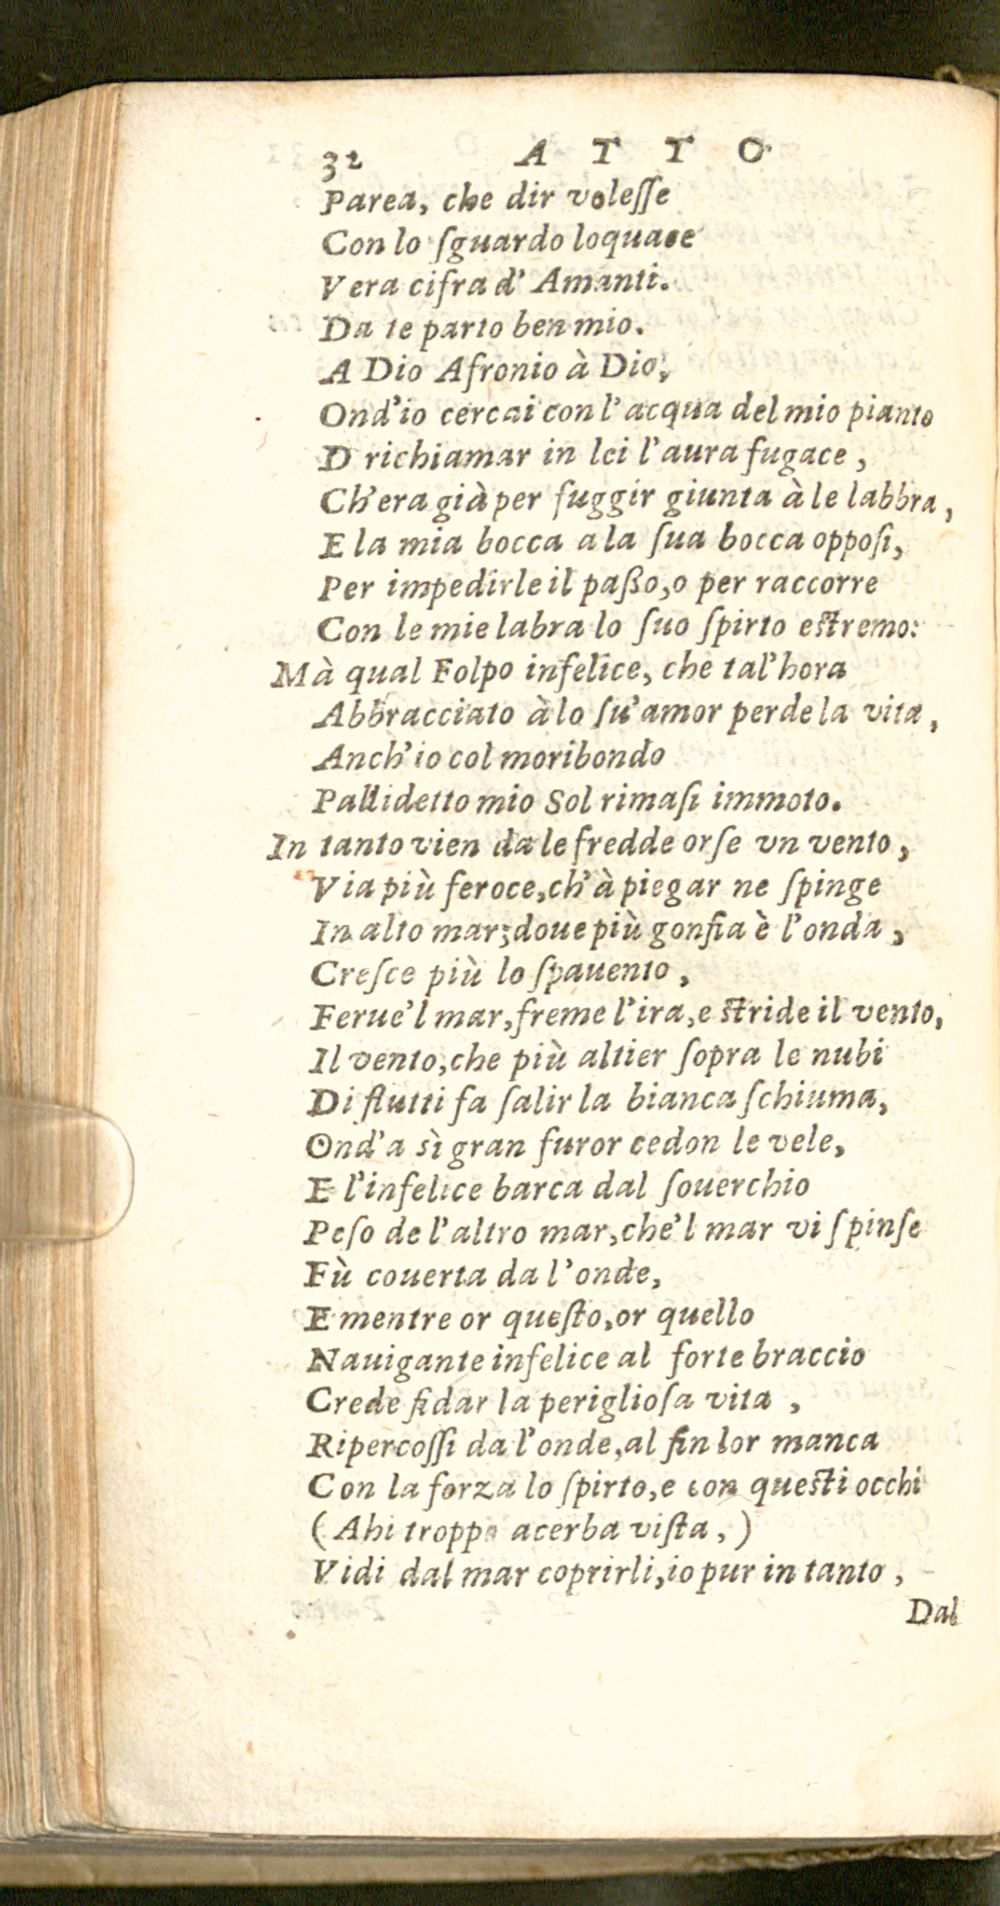 32 ATTO
Parea, che dir voleſſe
Con lo ſguardo loquace
Vera cifra d' Amanti.
Da te parto ben mio.
A Dio Afronio à Dio,
Ond'io cercai con l'acqua del mio pianto
D richiamar in lei l'aura fugace,
Ch'era già per fuggir giunta à le labbra,
E la mia bocca a la ſua bocca oppoſi,
Per impedirle il paßo, o per raccorre
Con le mie labra lo ſuo ſpirto eſtremo:
Mà qual Folpo infelice, che tal'hora
Abbracciato à lo ſu'amor perde la vita,
Anch'io col moribondo
Pallidetto mio Sol rimaſi immoto.
In tanto vien da le fredde orſe vn vento,
Via più feroce, ch'à piegar ne ſpinge
In alto mar; doue più gonfia è l'onda,
Creſce più lo ſpauento,
Ferue'l mar, freme l'ira, e ſtride il vento,
Il vento, che più altier ſopra le nubi
Di flutti fa ſalir la bianca ſchiuma,
Ond'a sì gran furor cedon le vele,
E l'infelice barca dal ſouerchio
Peſo de l'altro mar, che'l mar vi ſpinſe
Fù couerta da l'onde,
E mentre or queſto, or quello
Nauigante infelice al forte braccio
Crede fidar la periglioſa vita,
Ripercoſſi da l'onde, al fin lor manca
Con la forza lo ſpirto, e con queſti occhi
(Ahi troppo acerba viſta,)
Vidi dal mar coprirli, io pur in tanto,
Dal